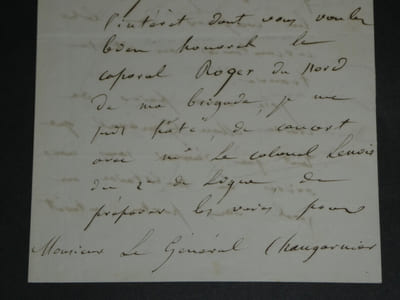 l'intérêt dont vous voulez
bien honorer le
caporal Roger du Nord
de ma brigade, je me
suis hâté, de concert
avec mr le colonel Lenois
du 2e de Ligne de
préparer les voies pour
Monsieur Le Général Changarnier